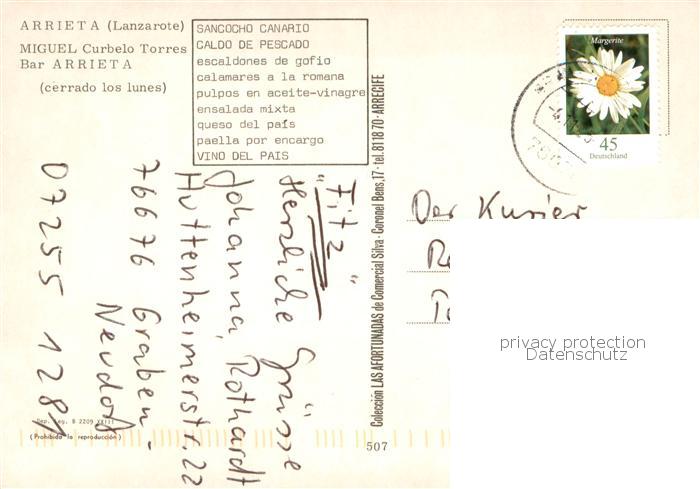 ARRIETA (Lanzarote)
MIGUEL Curbelo Torres
Bar ARRIETA
(cerrado los lunes)
SANCOCHO CANARIO
CALDO DE PESCADO
escaldones de gofio
calamares a la romana
pulpos en aceite-vinagre
ensalada mixta
queso del país
paella por encargo
VINO DEL PAIS
"Fitz"
Herzliche Grüsse
Johanna Rothardt
Huttenheimerstr. 22
76676 Graben-
Neudorf
07255 1281
Dep. Leg. B 2209 XXIII
(Prohibida la reproducción)
Colección LAS AFORTUNADAS de Comercial Silva - Coronel Bens, 17 - tel. 81 18 70 - ARRECIFE
507
Margerite
45
Deutschland
Der Kurier
privacy protection
Datenschutz